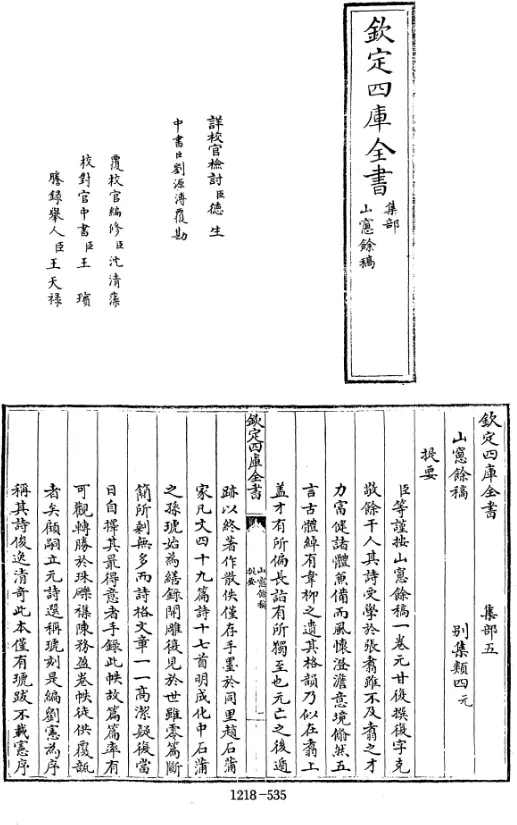 欽定四庫全書
集部
山窻餘稿
詳校官檢討臣德生
中書臣劉源溥覆勘
覆校官編修臣沈清藻
校對官中書臣王
謄録舉人臣王天禄
欽定四庫全書
集部五
山窻餘稿
别集類四元
提要
臣等謹按山窻餘稿一卷元甘復撰復字克
敬餘干人其詩受學於張翥雖不及翥之才
力富健諸體兼備而風懷澄澹意境翛然五
言古體綽有韋柳之遺其格韻乃似在翥上
盖才有所偏長詣有所獨至也元亡之後遁
欽定四庫全書
山窻餘稿
提要
跡以終著作散佚僅存手墨於同里趙石蒲
家凡文四十九篇詩十七首明成化中石蒲
之孫琥始為繕録開雕復見於世雖零篇斷
簡所剩無多而詩格文章一一高潔疑復當
日自擇其最得意者手録此帙故篇篇率有
可觀轉勝於珠礫襍陳務盈卷帙徒供覆瓿
者矣顧嗣立元詩選稱琥刻是編劉憲為序
稱其詩俊逸清奇此本僅有琥跋不載憲序
1218-535